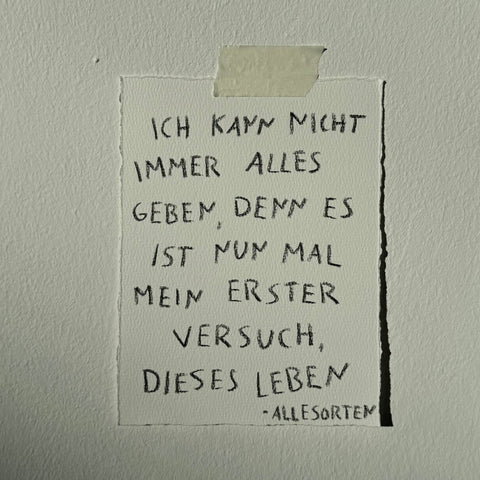 ICH KANN NICHT
IMMER ALLES
GEBEN, DENN ES
IST NUN MAL
MEIN ERSTER
VERSUCH,
DIESES LEBEN
-ALLESORTEN